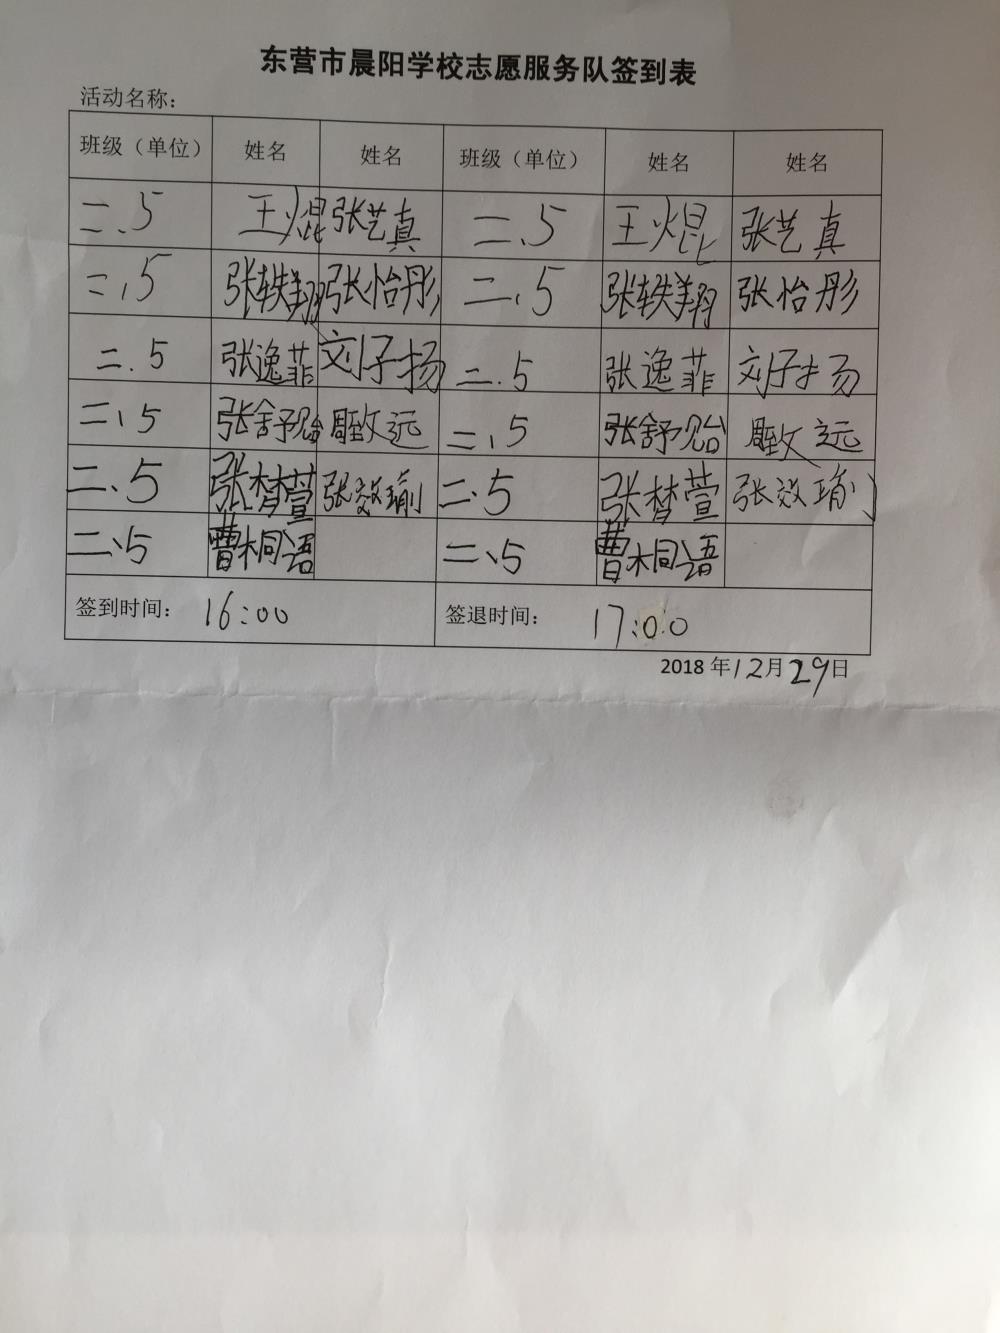 东营市晨阳学校志愿服务队签到表
活动名称：
班级（单位） 姓名 姓名 班级（单位） 姓名 姓名
二.5 王焜 张艺真 二.5 王焜 张艺真
二、5 张轶翔 张怡彤 二、5 张轶翔 张怡彤
二.5 张逸菲 刘子扬 二.5 张逸菲 刘子扬
二、5 张舒贻 周致远 二、5 张舒贻 周致远
二、5 张梦萱 张效瑜 二、5 张梦萱 张效瑜
二、5 曹桐语 二、5 曹桐语
签到时间： 16:00 签退时间： 17:00
2018 年12月29日